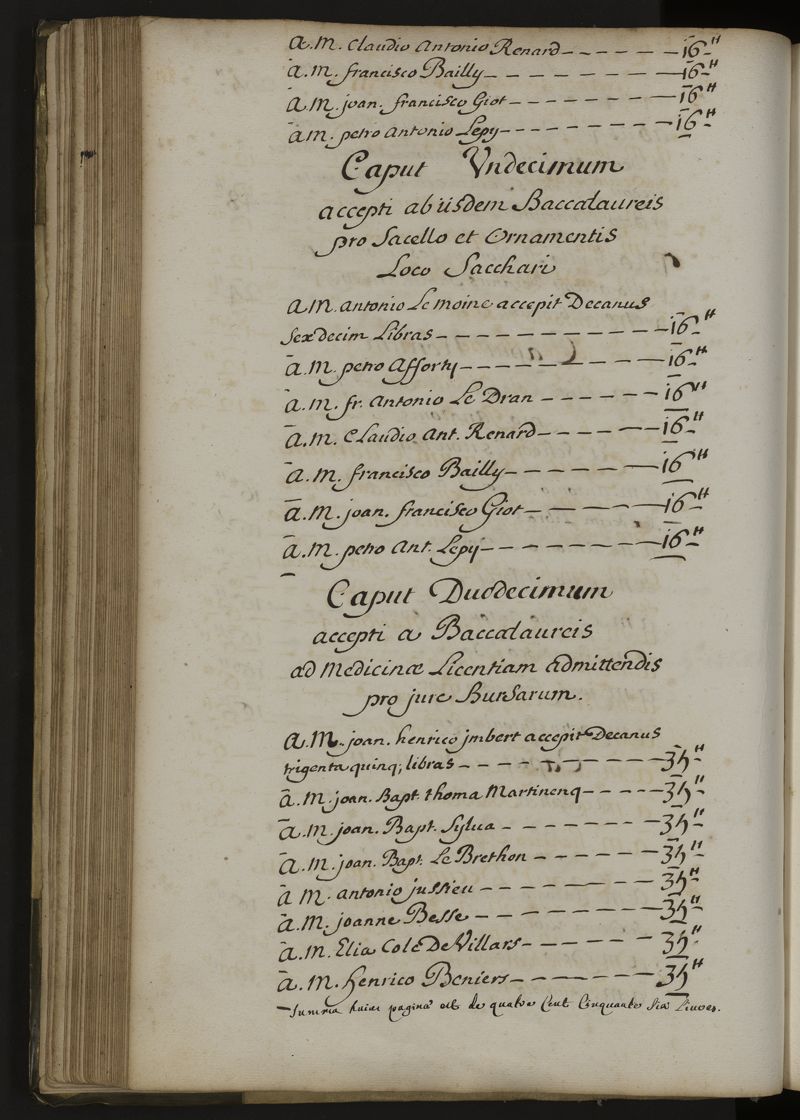 a. M. Claudio Antonio Renard 16"
a. m. francisco Bailly 16"
a M. joan. francisco Giot 16"
a m. petro Antonio Lepy 16"
Caput Vndecimum
accepti ab iisdem Baccalaureis
pro Sacello et Ornamentis
Loco Sacchari
a M. antonio Le moine accepit Decanus
Sexdecim Libras 16"
a. M. petro Afforty 16"
a. m. fr. Antonio Le Dran 16"
a. m. Claudio Ant. Renard 16"
a. M. francisco Bailly 16"
a. M. joan. francisco Giot 16"
a. M. petro Ant. Lepy 16"
Caput Duodecimum
accepti a Baccalaureis
ad Medicinæ Licentiam Admittendis
pro jure Bursarum.
a. M. joan. henrico jmbert accepit Decanus
trigenta quinq; libras 35"
a. M. joan. Bapt. thoma Martinenq 35"
a. M. joan. Bapt. Sylva 35"
a. M. joan. Bapt. Le Brethon 35"
a M. antonio jussieu 35"
a. M. joanne Besse 35"
a. M. Elia Col de Villars 35"
a. M. henrico Beniers 35"
Summa huius pagina est de quatre Cent Cinquante Six Liures.